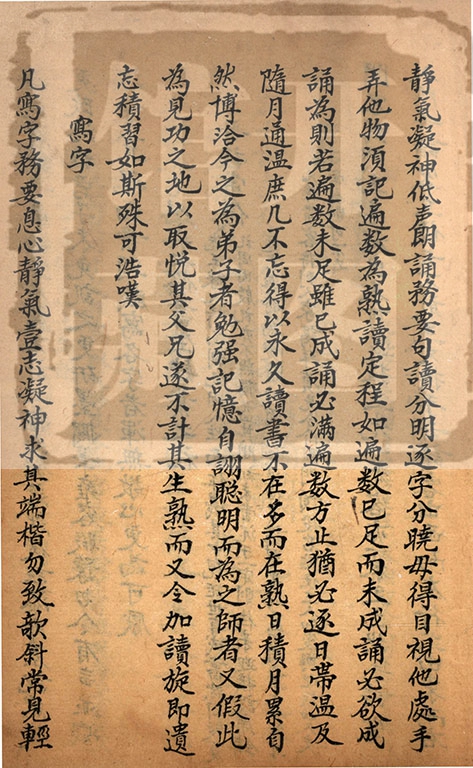 靜氣凝神低声朗誦務要句讀分明逐字分曉毋得目視他處手
弄他物須記遍数為熟讀定程如遍数已足而未成誦必欲成
誦為則若遍数未足雖已成誦必滿遍数方止猶必逐日帶温及
隨月通温庶几不忘得以永久讀書不在多而在熟日積月累自
然博洽今之為弟子者勉强記憶自詡聰明而為之師者又假此
為見功之地以取悦其父兄遂不計其生熟而又令加讀旋即遺
忘積習如斯殊可浩嘆
寫字
凡寫字務要息心靜氣壹志凝神求其端楷勿致欹斜常見輕